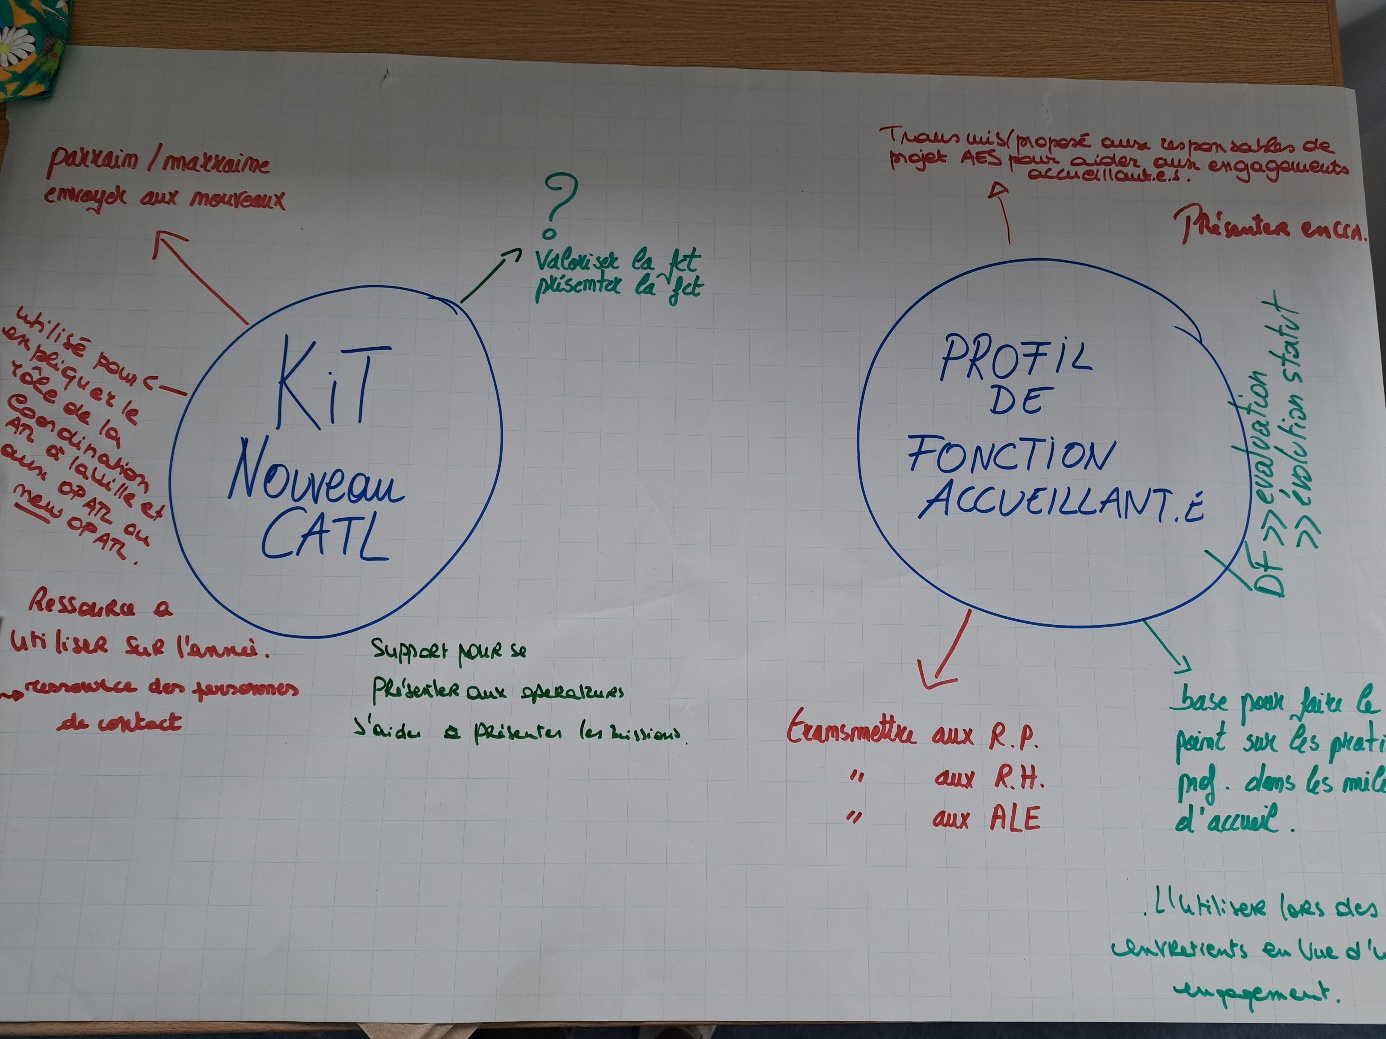 parrain/marraine
envoyer aux nouveaux
?
Valoriser la fct
présenter la fct
KiT
Nouveau
CATL
utilisé pour
expliquer le
rôle de la
coordination
ATL à la ville et
aux OPATL ou
new OPATL.
Ressource a
utiliser sur l'année.
→ ressource des personnes
de contact
Support pour se
présenter aux operateurs
s'aider a présenter les missions.
Transmis/proposé aux responsables de
projet AES pour aider aux engagements
accueillant.e.s.
Présenter en CCA.
PROFIL
DE
FONCTION
ACCUEILLANT.E
DF >> évaluation
>> évolution statut
transmettre aux R.P.
" aux R.H.
" aux ALE
base pour faire le
point sur les prati
prof. dans les mile
d'accueil.
. L'utiliser lors des
entretients en vue d'u
engagement.